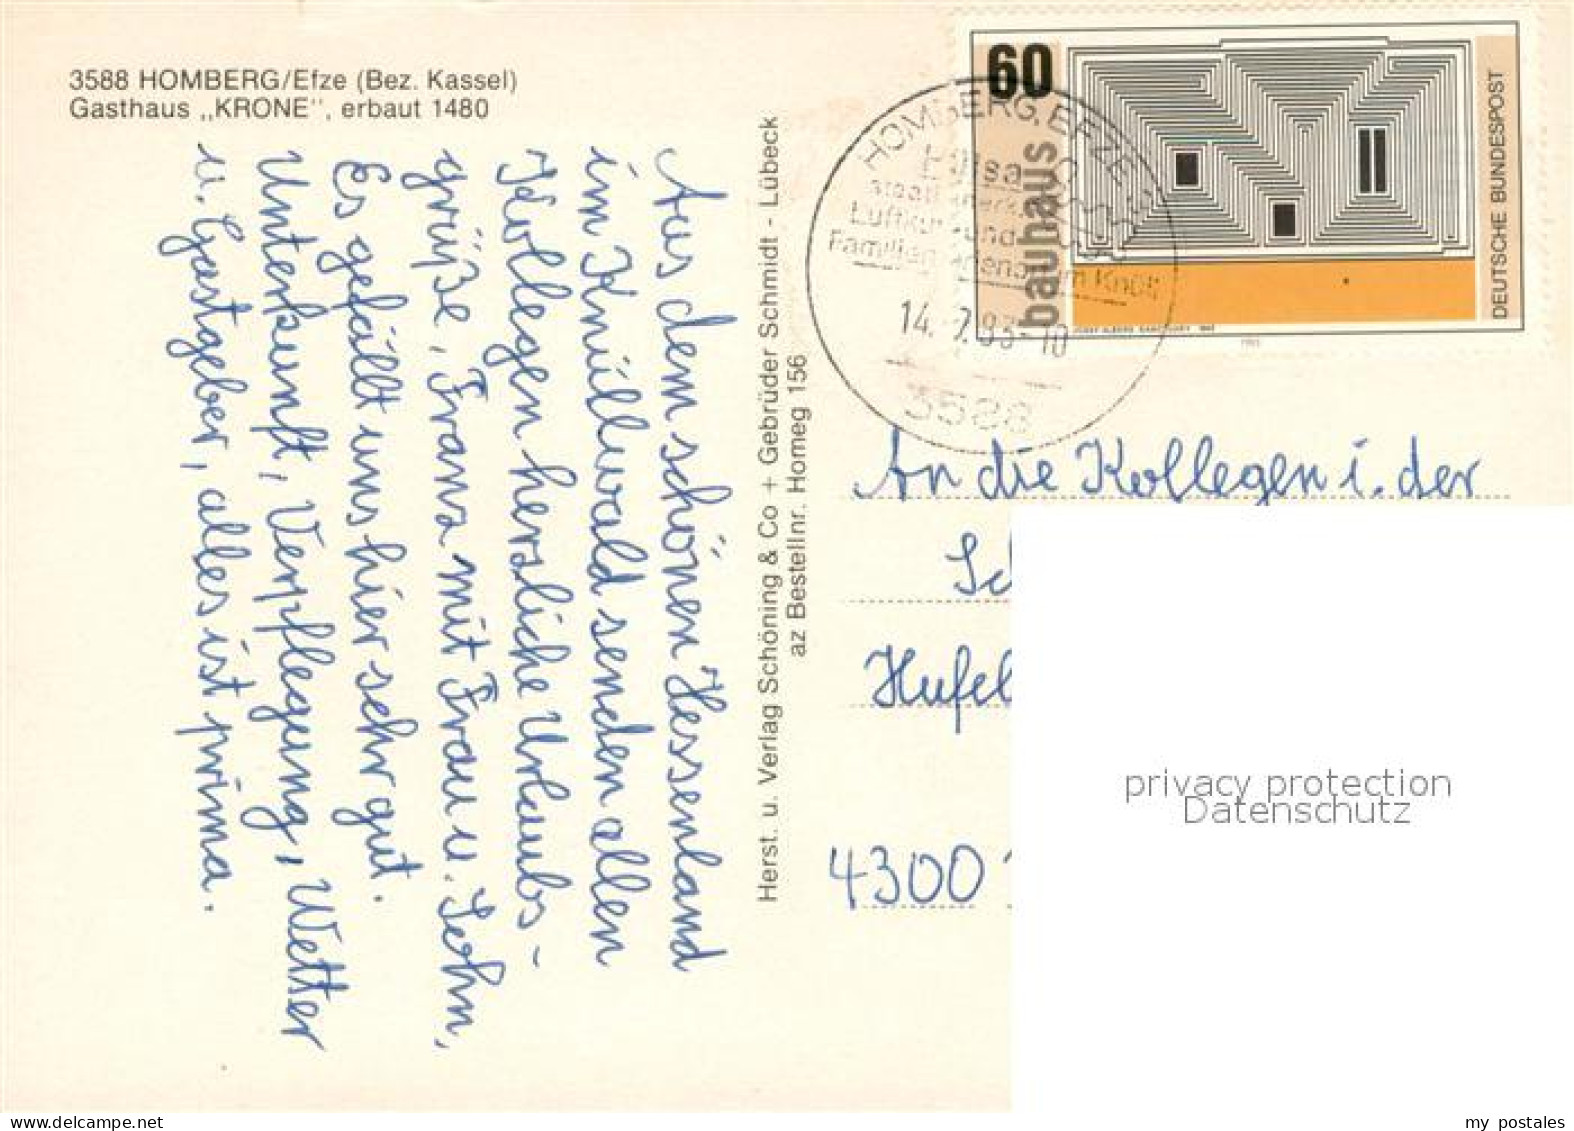 3588 HOMBERG/Efze (Bez. Kassel)
Gasthaus „KRONE", erbaut 1480
Aus dem schönen Hessenland
im Knüllwald senden allen
Kollegen herzliche Urlaubs-
grüße, Franz mit Frau u. Sohn,
Es gefällt uns hier sehr gut.
Unterkunft, Verpflegung, Wetter
u. Gastgeber, alles ist prima.
Herst. u. Verlag Schöning & Co + Gebrüder Schmidt - Lübeck
az Bestellnr. Homeg 156
60
bauhaus
DEUTSCHE BUNDESPOST
HOMBERG, EFZE
14. 7.83-10
3588
An die Kollegen i. der
Hufel
4300
privacy protection
Datenschutz
my postales
www.delcampe.net